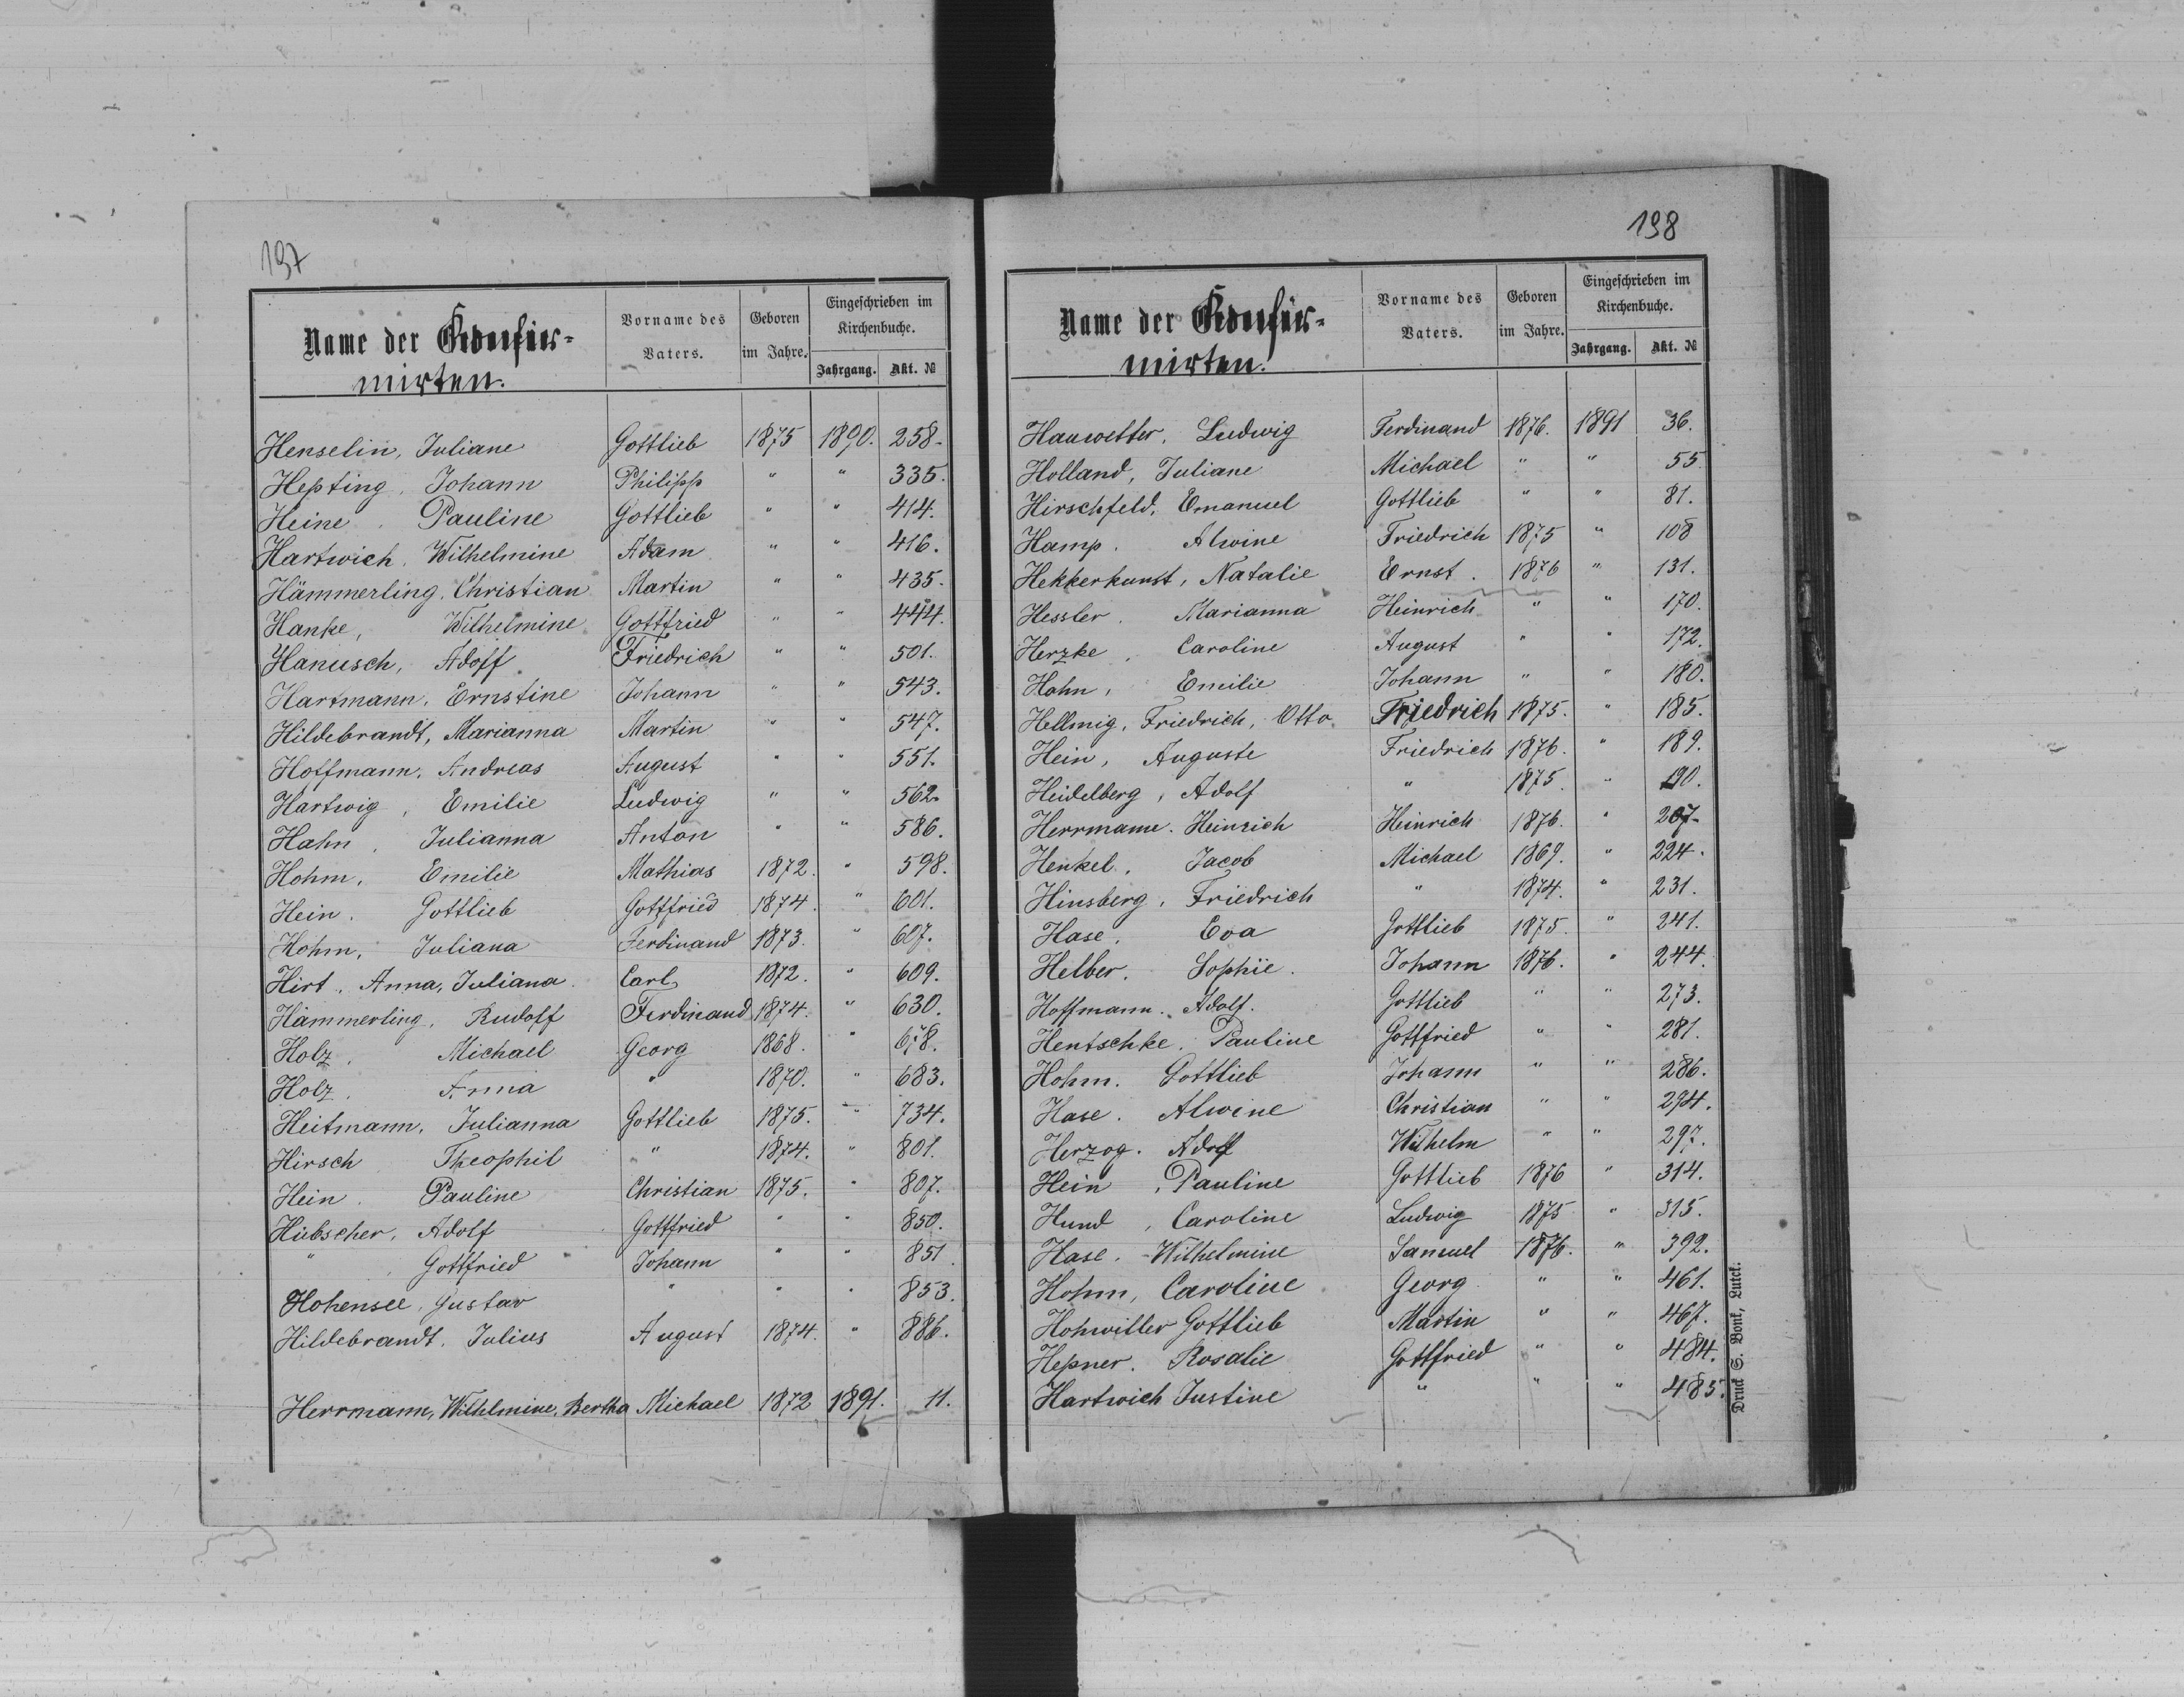 197
Name der Confir-
mirten.
Vorname des Vaters.
Geboren im Jahre.
Eingeschrieben im Kirchenbuche.
Jahrgang. Akt. №
Henselin, Juliane Gottlieb 1875 1890. 258.
Hepting, Johann Philipp " " 335.
Heine. Pauline Gottlieb " " 414.
Hartwich, Wilhelmine Adam " " 416.
Hämmerling, Christian Martin " " 435.
Hanke, Wilhelmine Gottfried " " 444.
Hanusch, Adolf Friedrich " " 501.
Hartmann, Ernstine Johann " " 543.
Hildebrandt, Marianna Martin " " 547.
Hoffmann, Andreas August " " 551.
Hartwig, Emilie Ludwig " " 562.
Hahn, Julianna Anton " " 586.
Hohm, Emilie Mathias 1872. " 598.
Hein. Gottlieb Gottfried 1874. " 601.
Hohm, Juliana Ferdinand 1873. " 607.
Hirt, Anna, Juliana. Carl 1872. " 609.
Hämmerling, Rudolf Ferdinand 1874. " 630.
Holz, Michael Georg 1868. " 678.
Holz, Anna " 1870. " 683.
Heitmann, Julianna Gottlieb 1875. " 734.
Hirsch Theophil " 1874. " 801.
Hein. Pauline Christian 1875. " 807.
Hübscher, Adolf Gottfried " " 850.
" , Gottfried Johann " " 851.
Hohensee, Gustav " " " 853.
Hildebrandt, Julius August 1874. " 886.
Herrmann, Wilhelmine, Bertha Michael 1872 1891. 11.
198
Name der Confir-
mirten.
Vorname des Vaters.
Geboren im Jahre.
Eingeschrieben im Kirchenbuche.
Jahrgang. Akt. №
Hauwetter, Ludwig Ferdinand 1876. 1891 36.
Holland, Juliane Michael " " 55
Hirschfeld, Emanuel Gottlieb " " 81.
Hamp. Alwine Friedrich 1875 " 108
Hekkerkunst, Natalie Ernst. 1876 " 131.
Hessler. Marianna Heinrich " " 170.
Herzke, Caroline August " " 172.
Hohn, Emilie Johann " " 180.
Hellmig, Friedrich, Otto Friedrich 1875. " 185.
Hein, Auguste Friedrich 1876. " 189.
Heidelberg, Adolf " 1875. " 190.
Herrmann. Heinrich Heinrich 1876. " 207.
Henkel, Jacob Michael 1869. " 224.
Hinsberg, Friedrich " 1874. " 231.
Hase, Eva Gottlieb 1875. " 241.
Helber. Sophie. Johann 1876. " 244.
Hoffmann. Adolf. Gottlieb " " 273.
Hentschke, Pauline Gottfried " " 281.
Hohm. Gottlieb Johann " " 286.
Hase. Alwine Christian " " 294.
Herzog. Adolf Wilhelm " " 297.
Hein, Pauline Gottlieb 1876 " 314.
Hund, Caroline Ludwig 1875 " 315.
Hase. Wilhelmine Samuel 1876. " 392.
Hohm, Caroline Georg " " 461.
Hohwiller Gottlieb Martin " " 467.
Hepner. Rosalie Gottfried " " 484.
Hartwich Justine " " " 485.
Druck S. Bonk, Lutck.